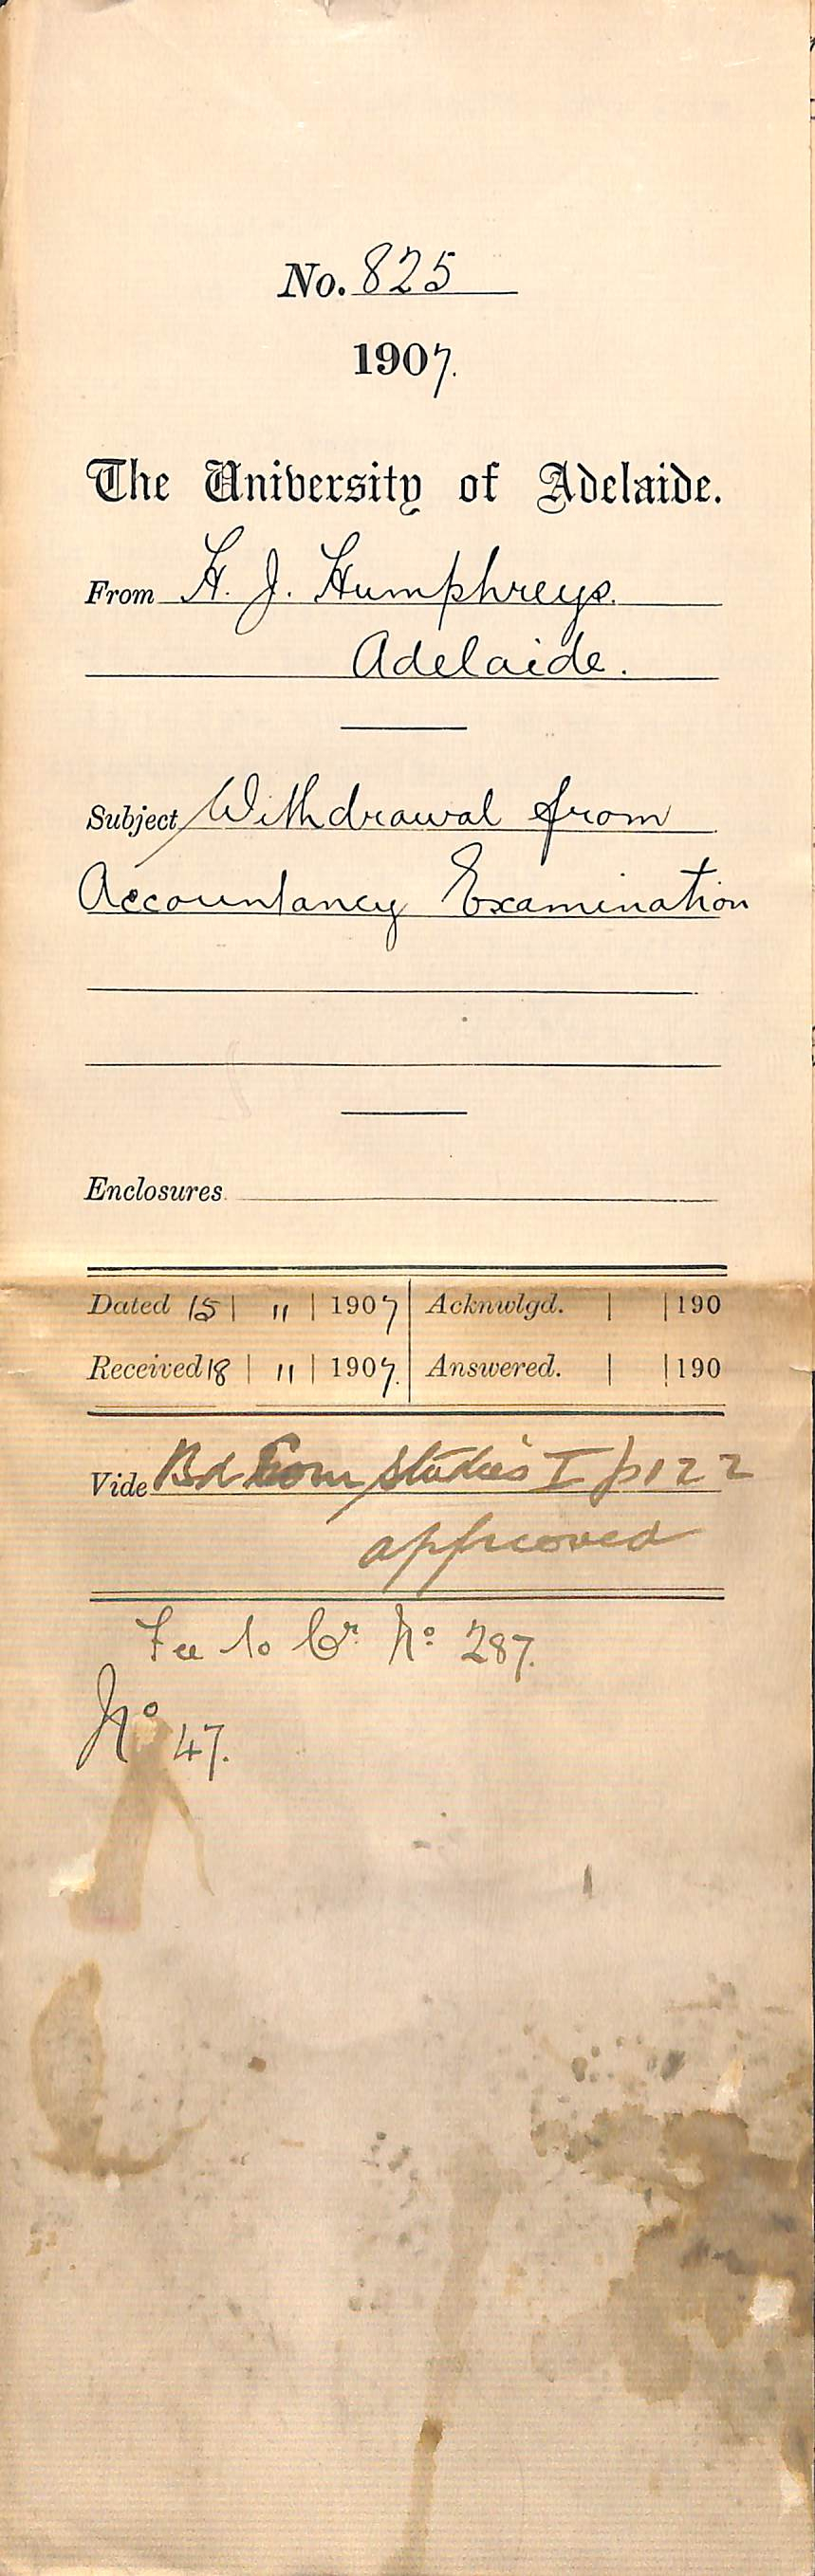 No. 825
1907.
The University of Adelaide.
From H. J. Humphreys.
Adelaide.
Subject Withdrawal from
Accountancy Examination
Enclosures
Dated 15 | 11 | 1907 | Acknwlgd. | | 190
Received 18 | 11 | 1907. | Answered. | | 190
Vide Bd Com Studies I p 122
approved
Fee to Cr. No 287.
No 47.